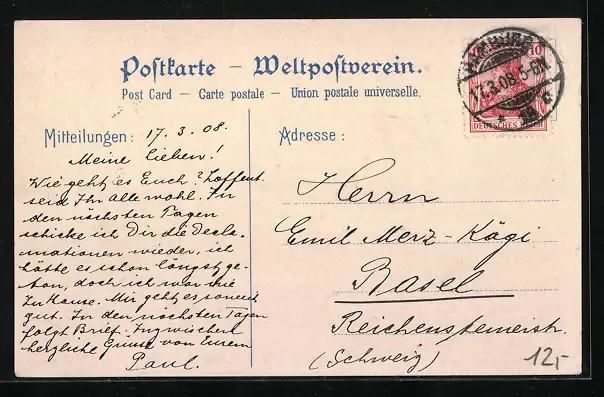 Postkarte – Weltpostverein.
Post Card – Carte postale – Union postale universelle.
Mitteilungen: 17.3.08.
Meine Lieben!
Wie geht es Euch? Hoffent.
seid Ihr Alle wohl. In
den nächsten Tagen
schicke ich Dir die Decla-
mationen wieder, ich
hätte es schon längst ge-
tan, doch ich war nie
zu Hause. Mir geht es soweit
gut. In den nächsten Tagen
folgt Brief. Inzwischen
herzliche Grüsse von Eurem
Paul.
Adresse:
Herrn
Emil Merz-Kägi
Basel
Reichensteinerstr.
(Schweiz)
12,-
10
DEUTSCHES REICH
HAMBURG
17.3.08.5-6N.